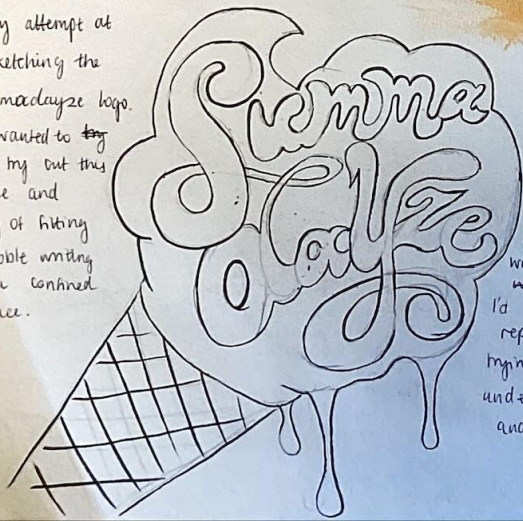 attempt at
sketching the
madayze logo.
wanted to try
try out this
and
of fitting
writing
confined
Summa
dayze
I'd
and